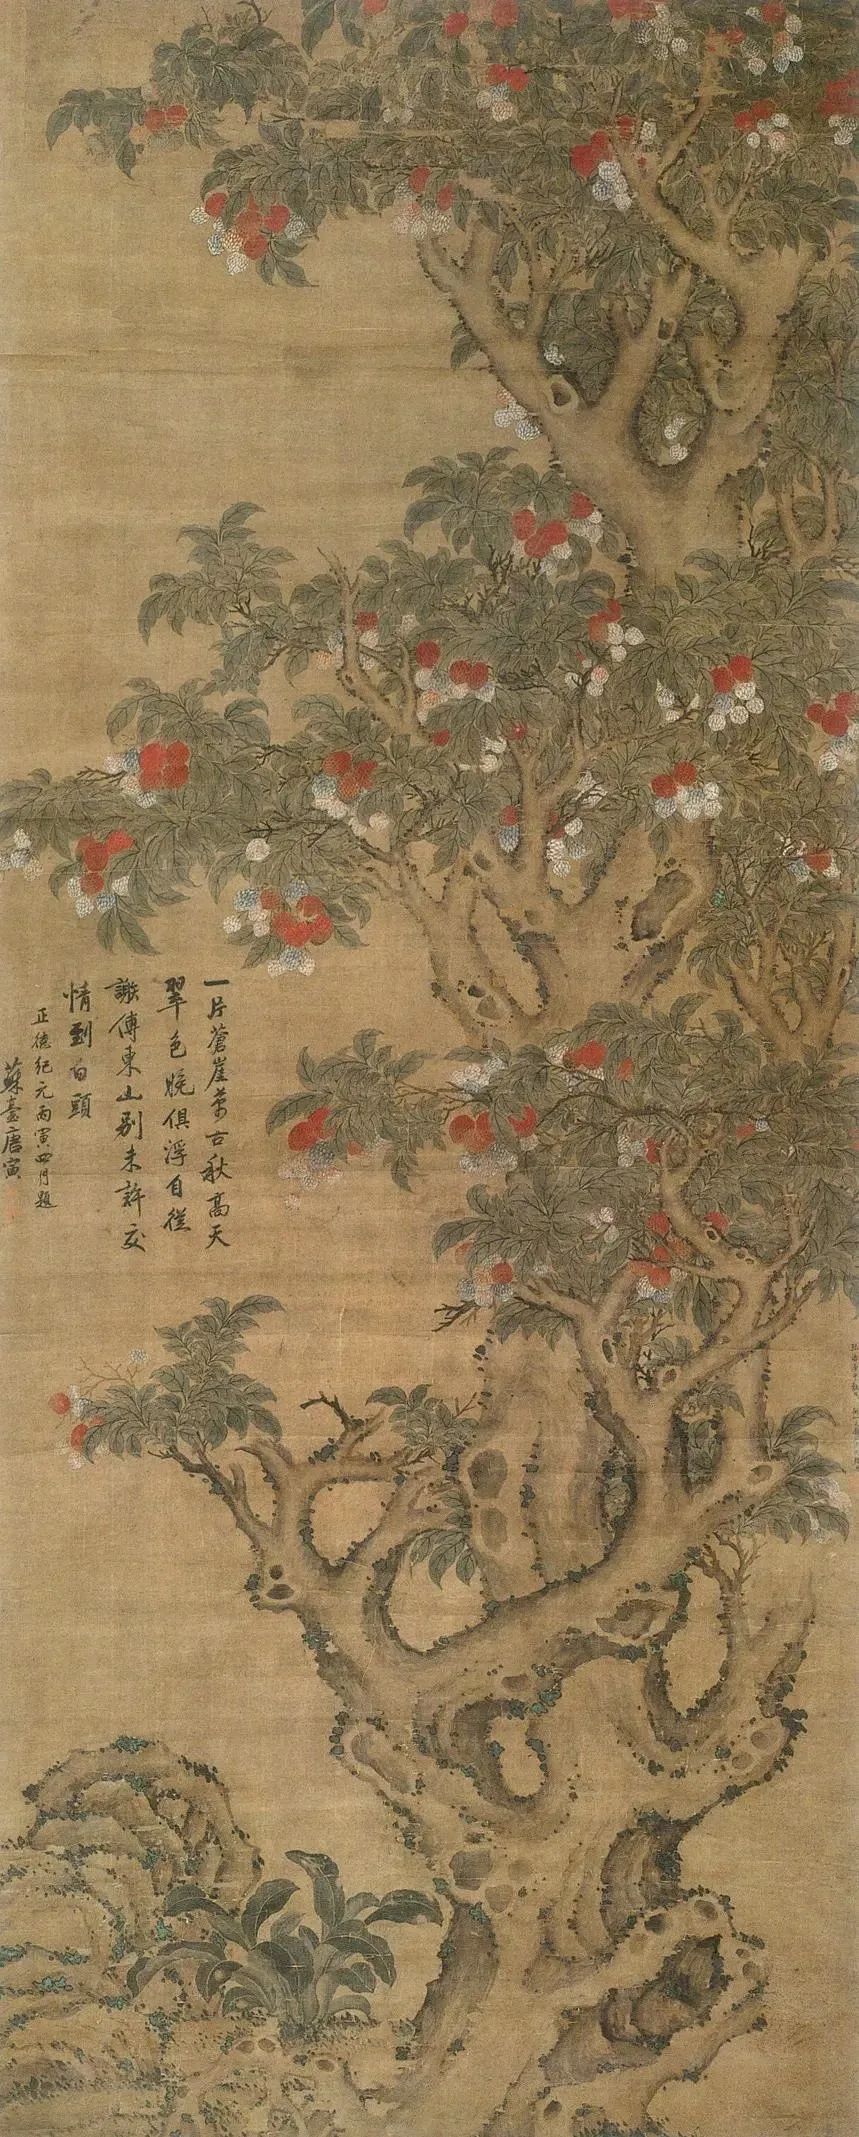 一片蒼崖萬古秋高天
翠色婉俱浮自從
謝傅東山別未許交
情到白頭
正德紀元丙寅四月題
蘇臺唐寅